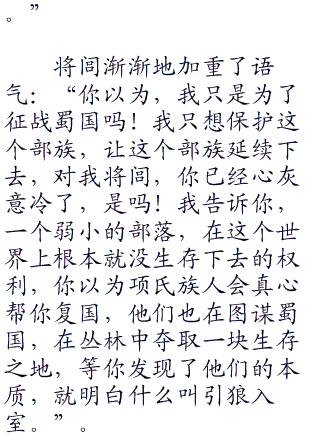 。”
将闾渐渐地加重了语
气：“你以为，我只是为了
征战蜀国吗！我只想保护这
个部族，让这个部族延续下
去，对我将闾，你已经心灰
意冷了，是吗！我告诉你，
一个弱小的部落，在这个世
界上根本就没生存下去的权
利，你以为项氏族人会真心
帮你复国，他们也在图谋蜀
国，在丛林中夺取一块生存
之地，等你发现了他们的本
质，就明白什么叫引狼入
室。”。